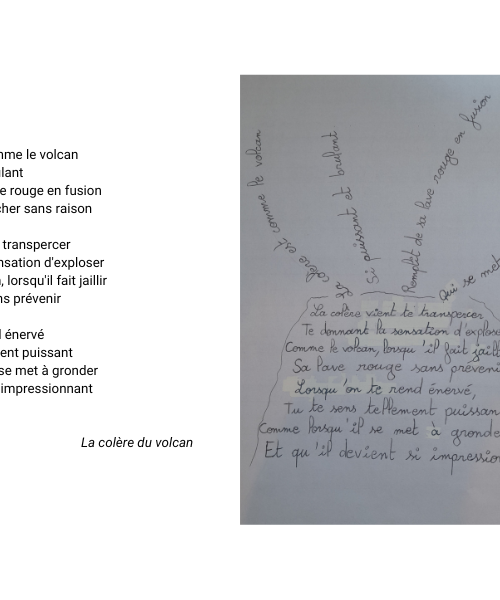 nme le volcan
lant
e rouge en fusion
cher sans raison
transpercer
nsation d'exploser
, lorsqu'il fait jaillir
ns prévenir
l énervé
ent puissant
se met à gronder
impressionnant
La colère du volcan
La colère est comme le volcan
Si puissant et brulant
Remplit de sa lave rouge en fusion
Qui se met
La colère vient te transpercer
Te donnant la sensation d'explose
Comme le volcan, lorsqu'il fait jaill
Sa lave rouge sans préveni
Lorsqu'on te rend énervé,
Tu te sens tellement puissan
Comme lorsqu'il se met à gronde
Et qu'il devient si impression